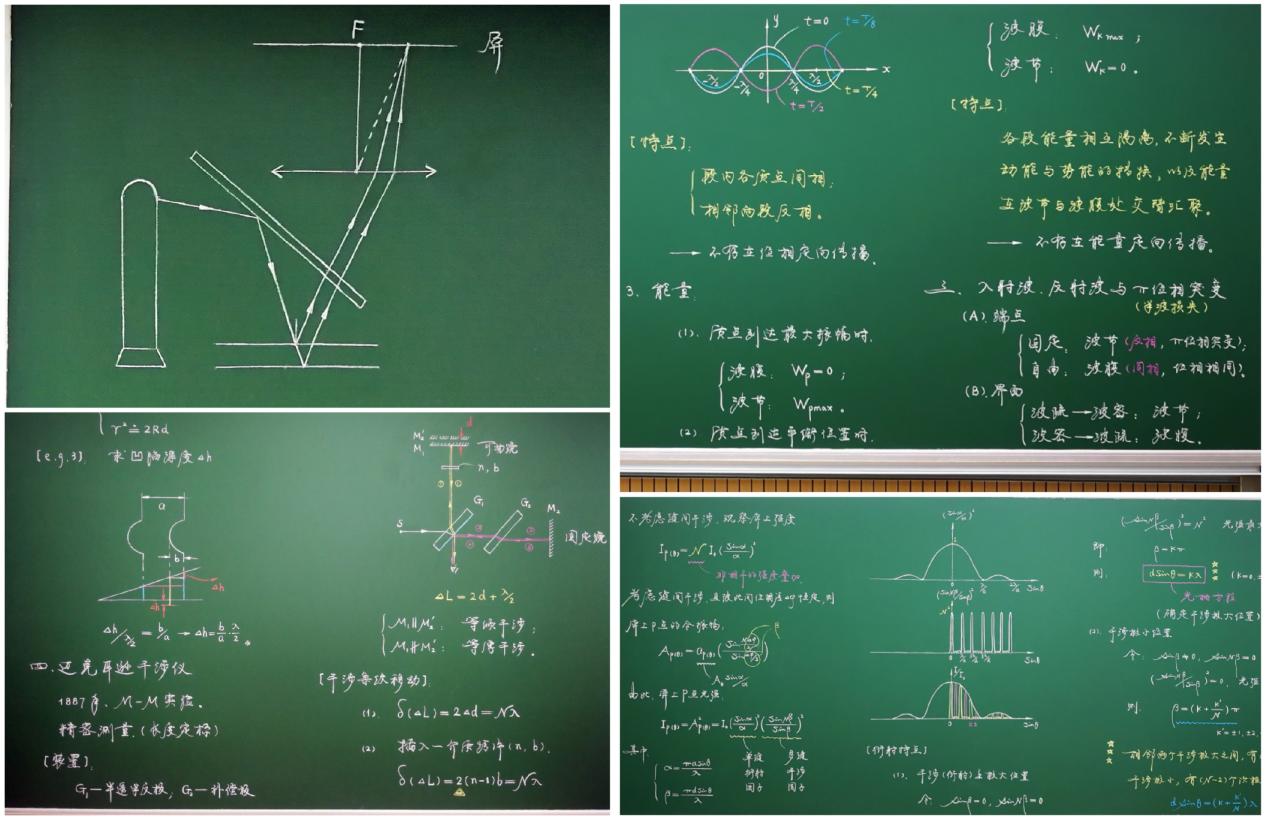 F
屏
y
t=0
t=T/8
x
-λ/2
-λ/4
0
λ/4
λ/2
t=T/4
t=T/2
[特点]:
段内各质点同相;
相邻两段反相。
→ 不存在位相定向传播。
3. 能量:
(1). 质点到达最大振幅时.
波腹: Wp=0;
波节: Wpmax。
(2) 质点到达平衡位置时.
波腹: Wkmax;
波节: Wk=0。
[特点]:
各段能量相互隔离,不断发生
动能与势能的转换,以及能量
在波节与波腹处交替汇聚。
→ 不存在能量定向传播。
三. 入射波、反射波与π位相突变
(半波损失)
(A). 端点
固定: 波节(反相, π位相突变);
自由: 波腹(同相, 位相相同)。
(B). 界面
波疏→波密: 波节;
波密→波疏: 波腹。
r²≐2Rd
[e.g.3]. 求凹陷深度Δh
a
b
Δh
Δh
Δh/λ/2 = b/a → Δh=b/a·λ/2。
四. 迈克耳逊干涉仪
1887年, M-M实验。
精密测量.(长度定标)
[装置]:
G₁—半透半反板, G₂—补偿板
d
M₂'
M₁
可动镜
n, b
①
①
G₁
G₂
M₂
S
②
②
固定镜
ΔL=2d+λ/2
M₁∥M₂': 等倾干涉;
M₁∦M₂': 等厚干涉。
[干涉条纹移动]:
(1). δ(ΔL)=2Δd=Nλ
(2) 插入一介质薄片(n, b).
δ(ΔL)=2(n-1)b=Nλ
不考虑缝间干涉, 观察屏上强度
Ip(θ)=N I₀(sinα/α)²
非相干的强度叠加
考虑缝间干涉, 且彼此间位相差Δφ恒定, 则
屏上P点的合振幅:
β
由此, 屏上P点光强:
Ip(θ)=A²p(θ)=I₀(sinα/α)²(sinNβ/sinβ)²
其中
单缝
衍射
因子
多缝
干涉
因子
α=πasinθ/λ
β=πdsinθ/λ
(sinα/α)²
1
0
sinθ
(sinNβ/sinβ)²
N²
0
sinθ
I/I₀
0
sinθ
[衍射特点]
(1). 干涉(衍射)主极大位置
令 sinβ=0, sinNβ=0
(sinNβ/sinβ)²=N²
即: β=kπ
则: dsinθ=kλ
光栅方程
(确定干涉极大位置)
(2). 干涉极小位置
令: sinβ≠0, sinNβ=0
(sinNβ/sinβ)²=0, 光强
则: β=(k+k'/N)π
k'=±1,±2,
相邻两个干涉极大之间, 有
干涉极小, 有(N-2)个次极
dsinθ=(k+k'/N)λ